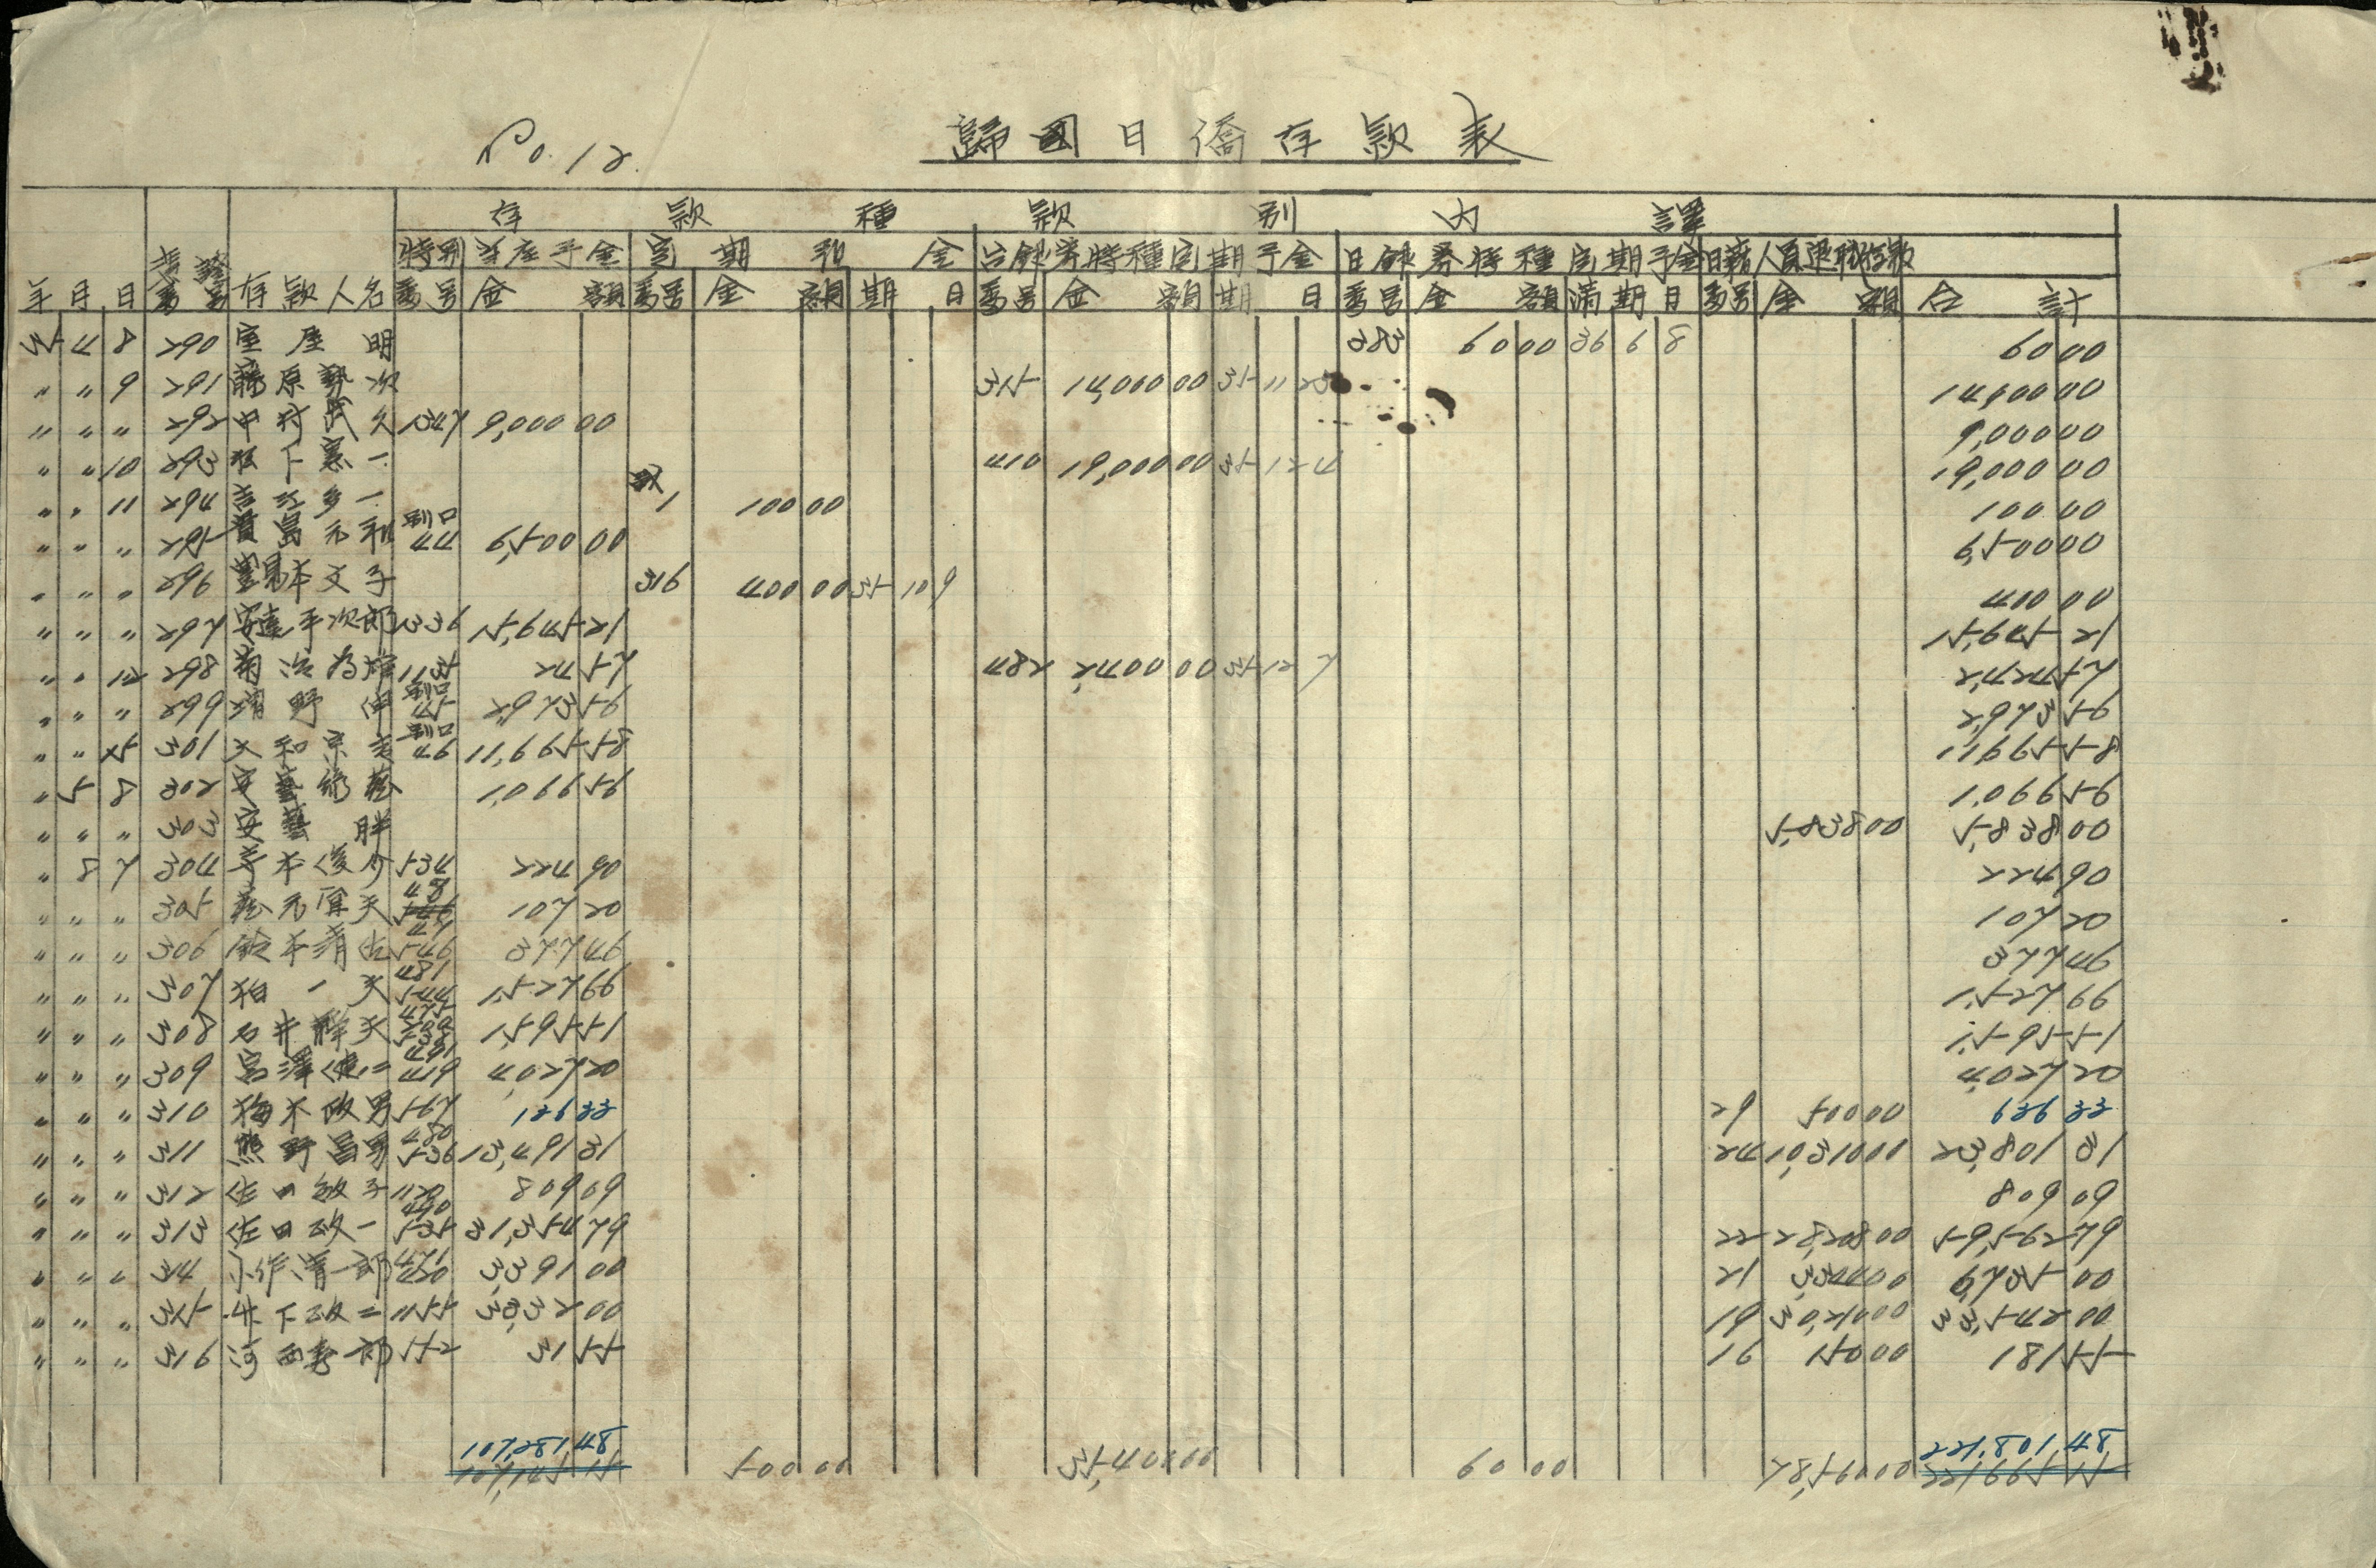 No. 12.
歸國日僑存款表
存款種款別內譯
特別當座予金 定期預金 台銀券特種定期予金 日銀券特種定期予金 日籍人員退職存款
年 月 日 番號 存款人名 番号 金額 番号 金額 期日 番号 金額 期日 番号 金額 滿期日 番号 金額 合計
35 4 8 290 室屋明 383 60 00 36 6 8 60 00
〃 〃 9 291 藤原 次 315 14,000 00 35 11 23 14,000 00
〃 〃 〃 292 中村武久 1347 9,000 00 9,000 00
〃 〃 10 293 下憲一 410 19,000 00 35 12 4 19,000 00
〃 〃 11 294 吉江多一 1 100 00 100 00
〃 〃 〃 295 島元利 別口44 6,500 00 6,500 00
〃 〃 〃 296 本文子 316 400 00 35 10 9 400 00
〃 〃 〃 297 安達平次郎 1336 15,645 21 15,645 21
〃 〃 12 298 菊池為雄 1135 24 57 482 2,400 00 35 12 7 2,424 57
〃 〃 〃 299 野伸 別口45 2,973 56 2,973 56
〃 〃 25 301 大和京吉 別口46 11,665 58 11,665 58
〃 5 8 302 安藝 1,066 56 1,066 56
〃 〃 〃 303 安藝胖 5,838 00 5,838 00
〃 8 7 304 本俊夕 534 224 90 224 90
〃 〃 〃 305 元 夫 48 546 107 20 107 20
〃 〃 〃 306 鈴木清 47 546 377 46 377 46
〃 〃 〃 307 柏一夫 481 544 1,527 66 1,527 66
〃 〃 〃 308 石井 夫 475 538 1,595 51 1,595 51
〃 〃 〃 309 宮澤健二 491 419 4,027 20 4,027 20
〃 〃 〃 310 梅木政男 567 136 33 29 500 00 636 33
〃 〃 〃 311 熊野昌男 480 536 13,491 31 24 10,310 00 23,801 31
〃 〃 〃 312 佐田敏子 1120 809 09 809 09
〃 〃 〃 313 佐田政一 490 535 31,354 79 22 28,208 00 59,562 79
〃 〃 〃 314 小作清一郎 476 420 3,391 00 21 3,344 00 6,735 00
〃 〃 〃 315 井下政二 1155 3,332 00 19 30,210 00 33,542 00
〃 〃 〃 316 河西 一郎 552 31 55 16 150 00 181 55
107,281.48 221,801.48
107,145 15 500 00 35,400 00 60 00 78,560 00 221,665 15